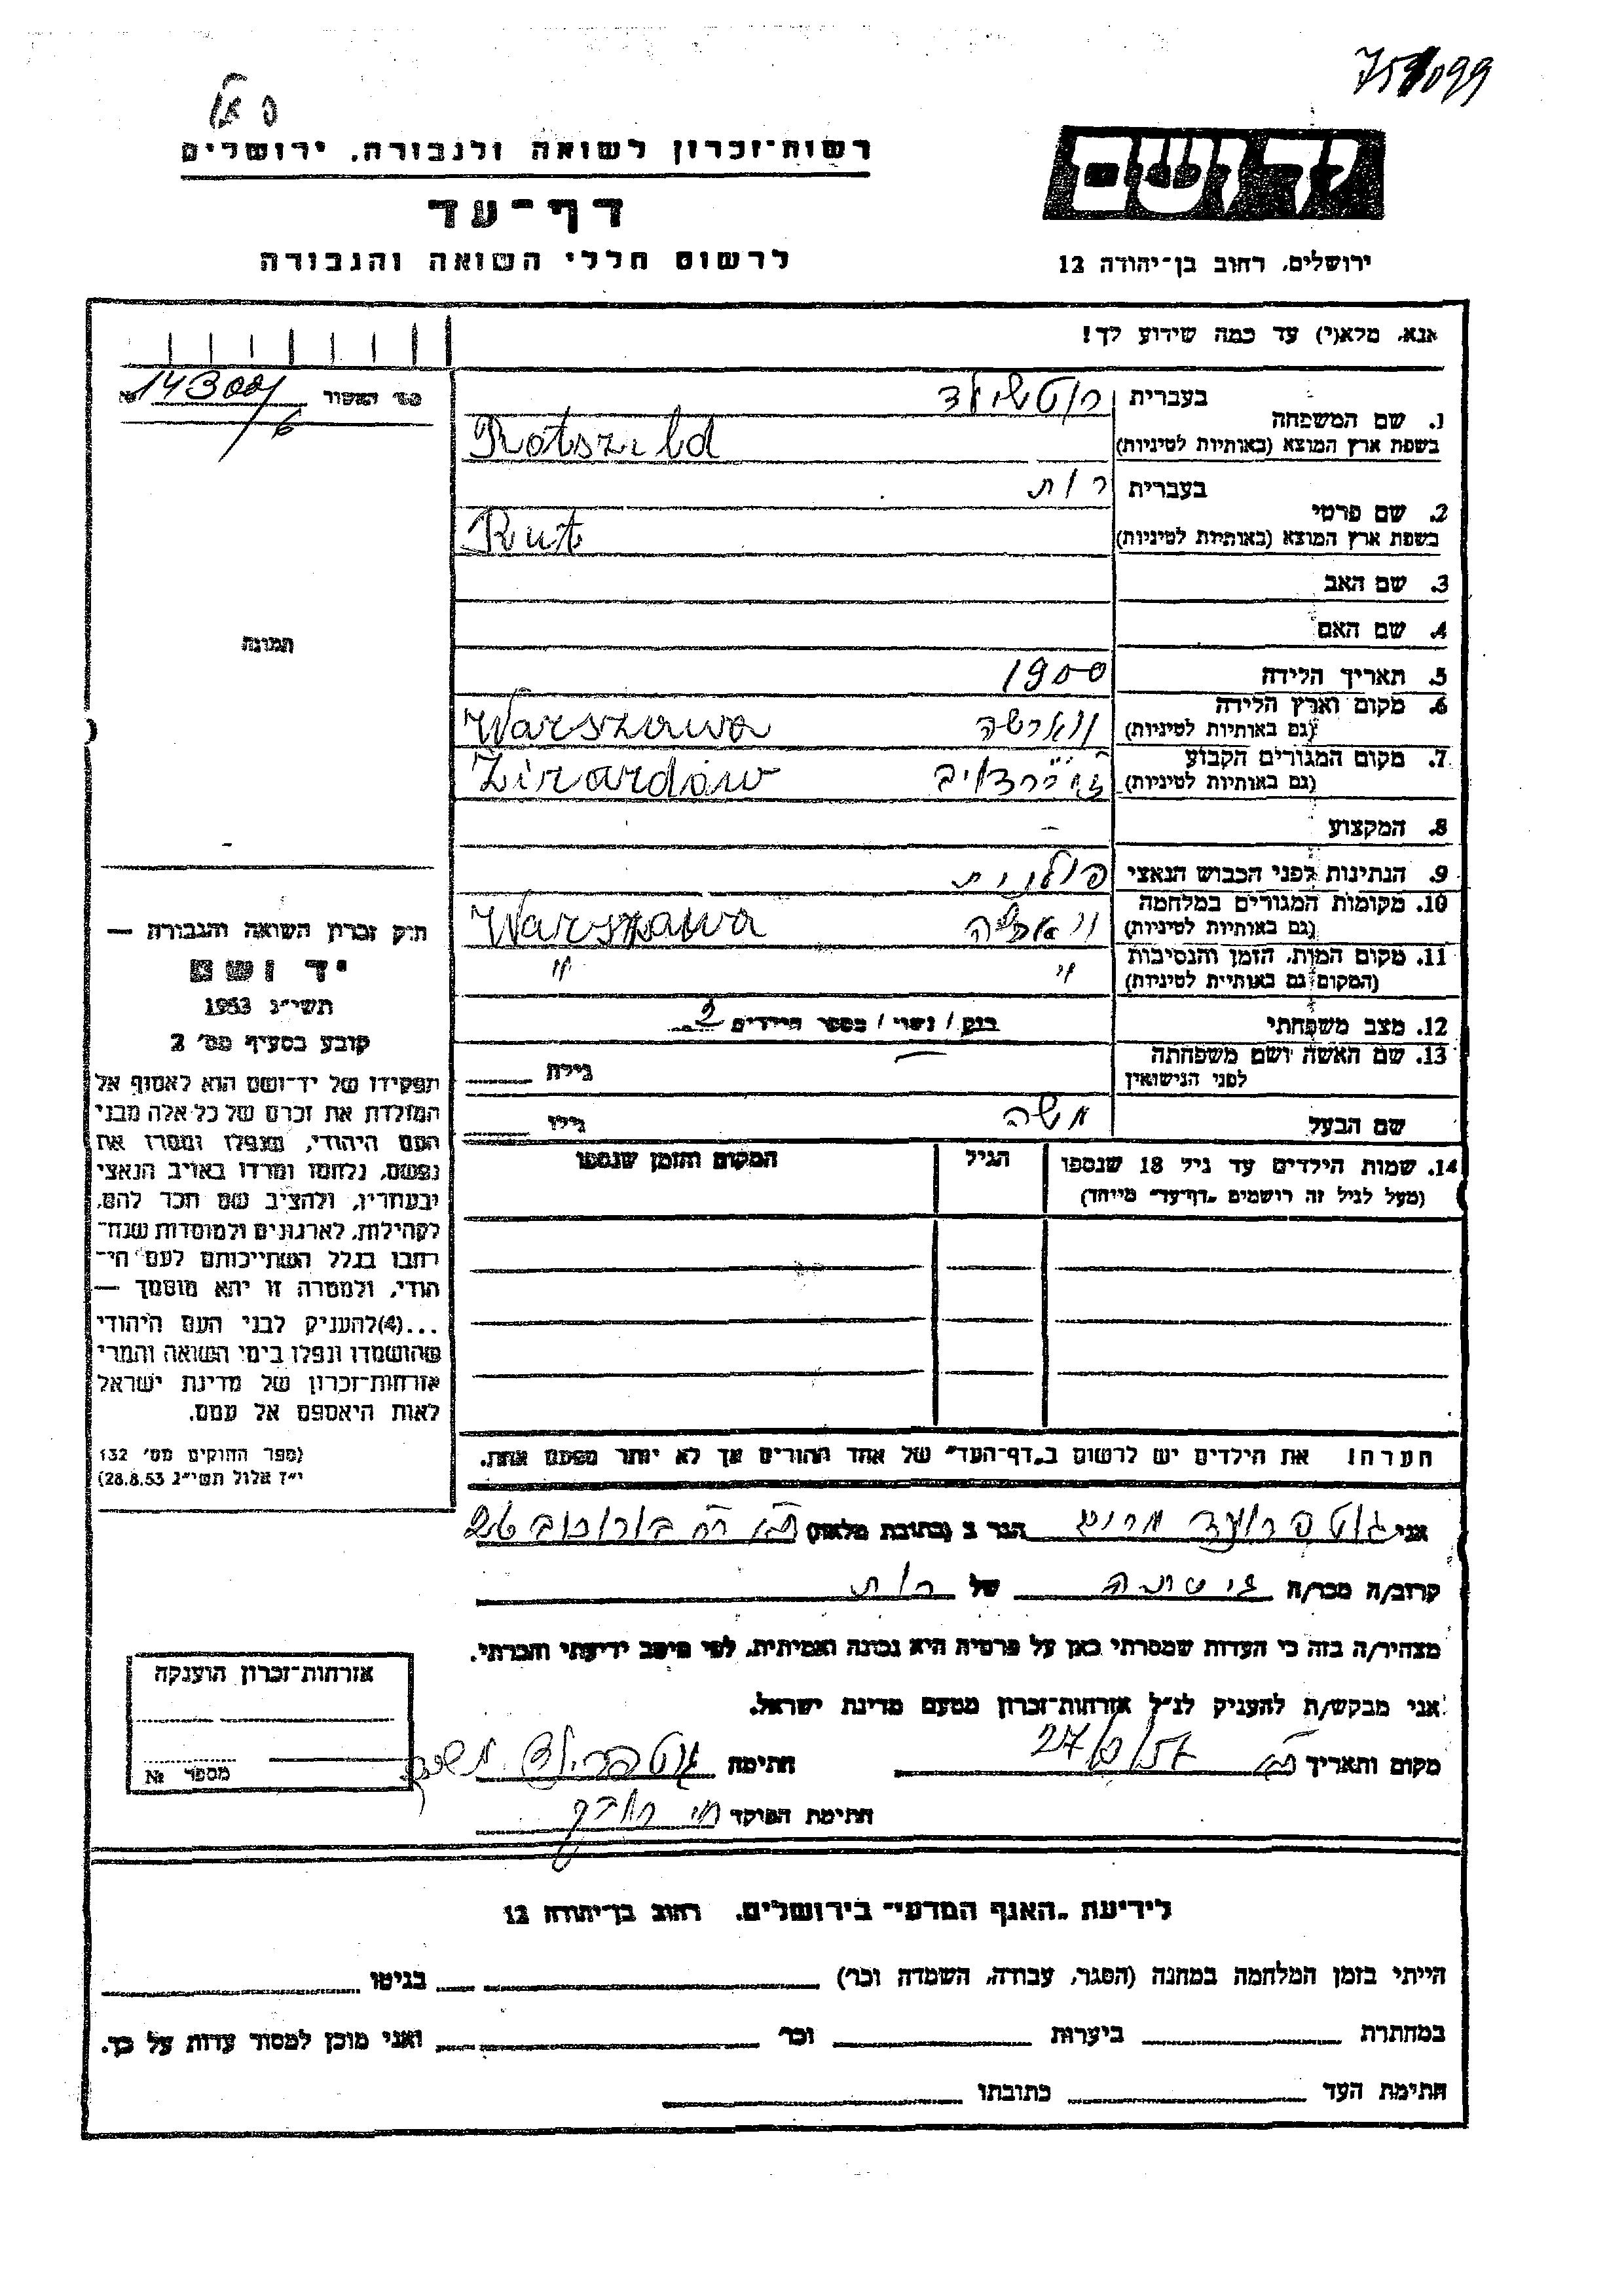 רשות־זכרון לשואה ולגבורה. ירושלים
דף־עד
לרשום חללי השואה והגבורה
יד ושם
ירושלים, רחוב בן־יהודה 12
אנא, מלא(י) עד כמה שידוע לך!
מס' האשור № 143001/6
1. שם המשפחה בעברית רוטשילד
בשפת ארץ המוצא (באותיות לטיניות) Rotszild
2. שם פרטי בעברית רות
בשפת ארץ המוצא (באותיות לטיניות) Rut
3. שם האב
4. שם האם
5. תאריך הלידה 1900
6. מקום וארץ הלידה ווארשה Warszawa
(גם באותיות לטיניות)
7. מקום המגורים הקבוע Żirardów
(גם באותיות לטיניות)
8. המקצוע –
9. הנתינות לפני הכבוש הנאצי פולנית
10. מקומות המגורים במלחמה ווארשה Warszawa
(גם באותיות לטיניות)
11. מקום המות, הזמן והנסיבות " "
(המקום גם באותיות לטיניות)
12. מצב משפחתי רווק / נשוי / מספר הילדים 2
13. שם האשה ושם משפחתה — גילה
לפני הנישואין
שם הבעל משה גילו
14. שמות הילדים עד גיל 18 שנספו הגיל המקום והזמן שנספו
(מעל לגיל זה רושמים "דף־עד" מיוחד)
הערה: את הילדים יש לרשום ב"דף־העד" של אחד ההורים אך לא יותר מפעם אחת.
תמונה
חוק זכרון השואה והגבורה —
יד ושם
תשי"ג 1953
קובע בסעיף מס' 2
תפקידו של יד־ושם הוא לאסוף אל
המולדת את זכרם של כל אלה מבני
העם היהודי, שנפלו ומסרו את
נפשם, נלחמו ומרדו באויב הנאצי
ובעוזריו, ולהציב שם וזכר להם,
לקהילות, לארגונים ולמוסדות שנח־
רבו בגלל השתייכותם לעם הי־
הודי, ולמטרה זו יהא מוסמך —
...(4)להעניק לבני העם היהודי
שהושמדו ונפלו בימי השואה והמרי
אזרחות־זכרון של מדינת ישראל
לאות היאספם אל עמם.
(ספר החוקים מס' 132
י"ז אלול תשי"ג 28.8.53)
אני הגר ב (כתובת מלאה) בורוכוב 26
קרוב/ה מכר/ה של רות
מצהיר/ה בזה כי העדות שמסרתי כאן על פרטיה היא נכונה ואמיתית, לפי מיטב ידיעתי והכרתי.
אני מבקש/ת להעניק לנ"ל אזרחות־זכרון מטעם מדינת ישראל.
מקום ותאריך חתימה
חתימת הפוקד
אזרחות־זכרון הוענקה
מספר №
לידיעת "האגף המדעי" בירושלים. רחוב בן־יהודה 12
הייתי בזמן המלחמה במחנה (הסגר, עבודה, השמדה וכו') בגיטו
במחתרת ביערות וכו' ואני מוכן למסור עדות על כך.
חתימת העד כתובתו